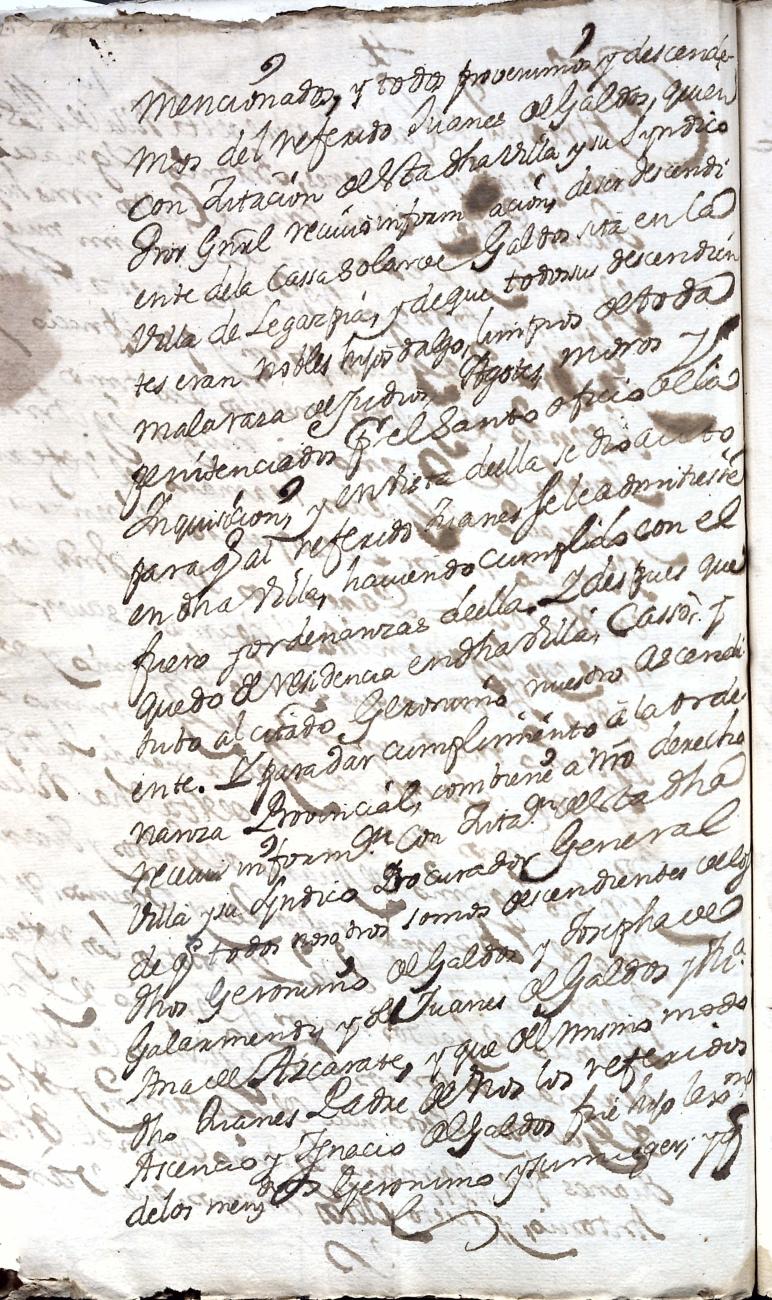 mencionados, y todos provenimos y descende-
mos del referido Juanes de Galdos, quien
con zitacion de esta dha Villa y su Syndico
Pror Gnrl recivio informacion, de ser descendi
ente de la Cassa solar de Galdos sita en la
Villa de Legazpia, y de que todos sus descendien
tes eran nobles hijosdalgo, limpios de toda
mala raza de Judios, Agotes, moros y
penitenciados pr el Santo oficio de la
Inquisicion, y en vista de ella se dio auto
para q al referido Juanes se le admitiese
en dha Villa, haviendo cumplido con el
fuero y ordenanzas de ella. Y despues que
quedo de residencia en dha Villa, Casso, y
tubo al citado Geronimo nuestro ascendi
ente. Y para dar cumplimiento a la orde
nanza Provincial, combiene a nro derecho
recivir informn con zitan de esta dha
Villa y su Syndico Procurador General
de q todos nosotros somos descendientes de los
dhos Geronimo de Galdos y Josepha de
Galarmendi, y de Juanes de Galdos y Ma
Ana de Azcarate, y que del mismo modo
dho Juanes Padre de nos los referidos
Ascencio y Ignacio de Galdos fue hijo lexmo
de los mendos Geronimo y su muger; y q